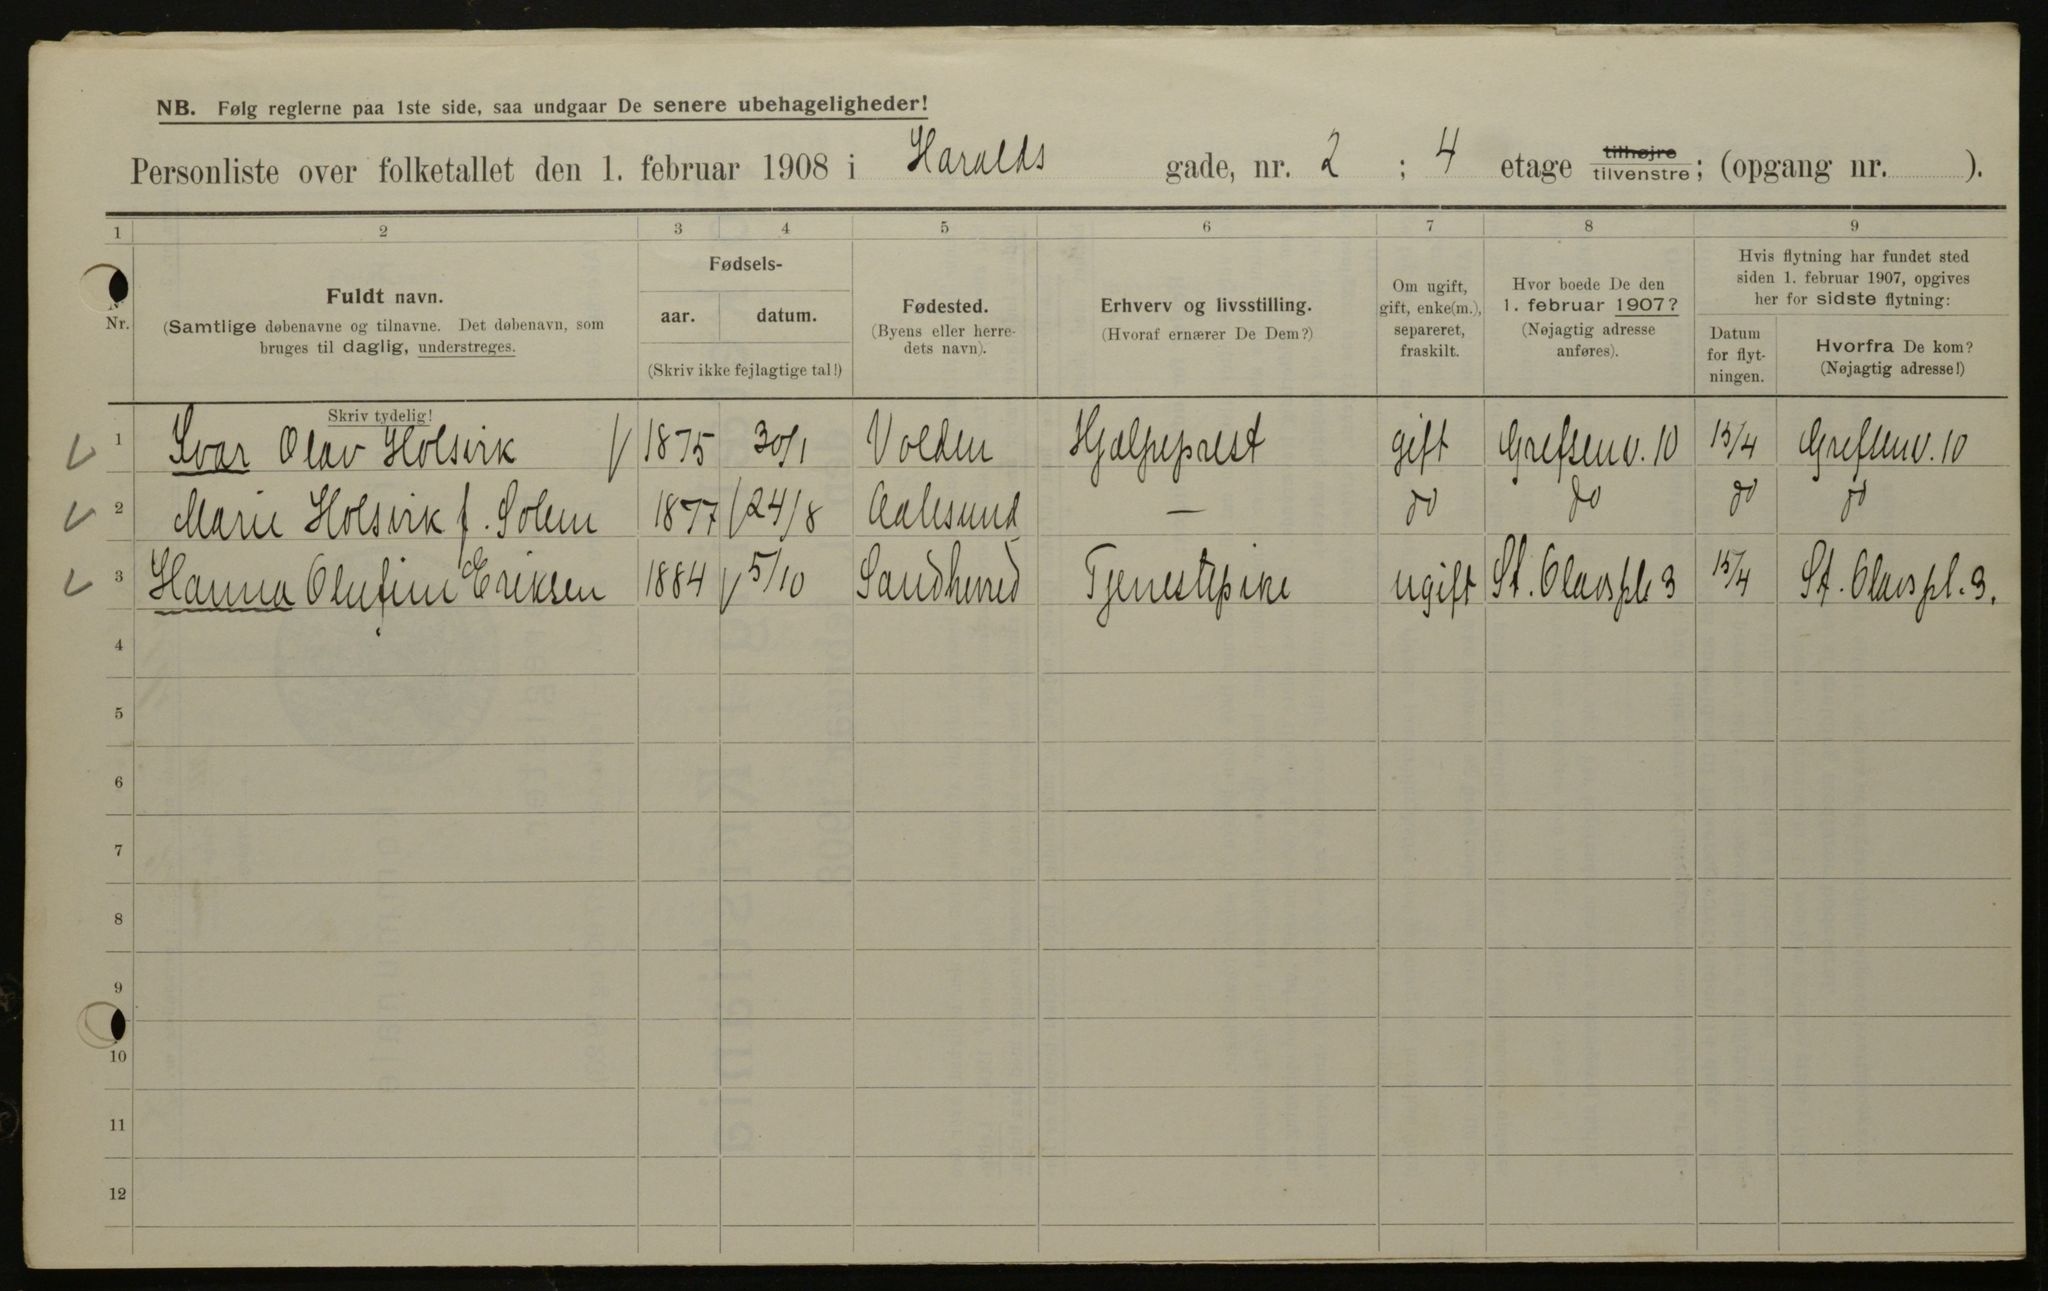 NB. Følg reglerne paa 1ste side, saa undgaar De senere ubehageligheder!
Personliste over folketallet den 1. februar 1908 i Haralds gade, nr. 2 ; 4 etage tilhøjre tilvenstre ; (opgang nr. ).
1 2 3 4 5 6 7 8 9
Nr.
Fuldt navn.
(Samtlige døbenavne og tilnavne. Det døbenavn, som
bruges til daglig, understreges.
Skriv tydelig!
Fødsels-
aar. datum.
(Skriv ikke fejlagtige tal!)
Fødested.
(Byens eller herre-
dets navn).
Erhverv og livsstilling.
(Hvoraf ernærer De Dem?)
Om ugift,
gift, enke(m.),
separeret,
fraskilt.
Hvor boede De den
1. februar 1907?
(Nøjagtig adresse
anføres).
Hvis flytning har fundet sted
siden 1. februar 1907, opgives
her for sidste flytning:
Datum
for flyt-
ningen.
Hvorfra De kom?
(Nøjagtig adresse!)
1 Ivar Olav Holsvik 1875 30/1 Volden Hjælpeprest gift Grefsenv. 10 15/4 Grefsenv. 10
2 Marie Holsvik f. Solem 1877 24/8 Aalesund — do do do do
3 Hanna Olufine Eriksen 1884 5/10 Sandherred Tjenestepike ugift St. Olavspl. 3 15/4 St. Olavspl. 3.
4
5
6
7
8
9
10
11
12